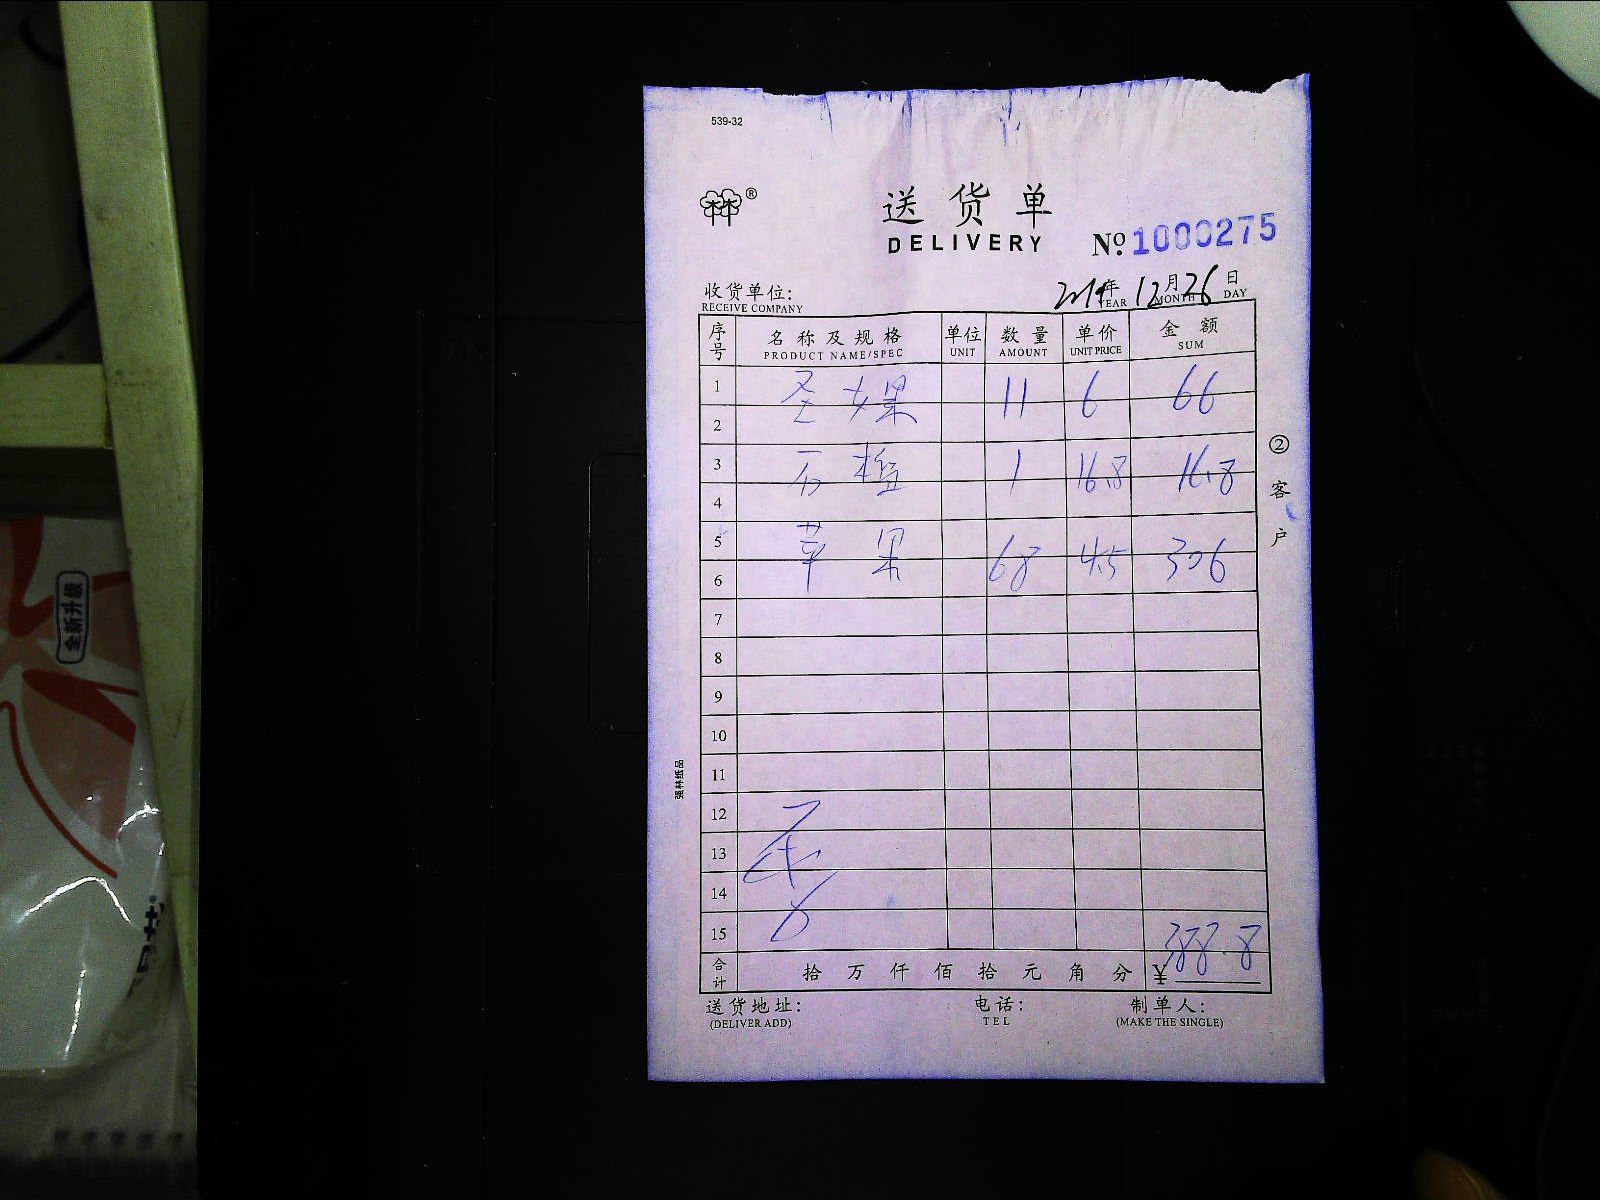 539-32
®
送货单
DELIVERY
№ 1000275
收货单位:
RECEIVE COMPANY
2019年 12月 26日
YEAR MONTH DAY
序号 名称及规格 单位 数量 单价 金额
PRODUCT NAME/SPEC UNIT AMOUNT UNIT PRICE SUM
1 圣女果 11 6 66
2
3 石榴 1 16.8 16.8
4
5 苹果 68 4.5 306
6
7
8
9
10
11
12
13
14
15
合计 拾万仟佰拾元角分 ¥ 388.8
送货地址: 电话: 制单人:
(DELIVER ADD) TEL (MAKE THE SINGLE)
② 客户
强林纸品
全新升级